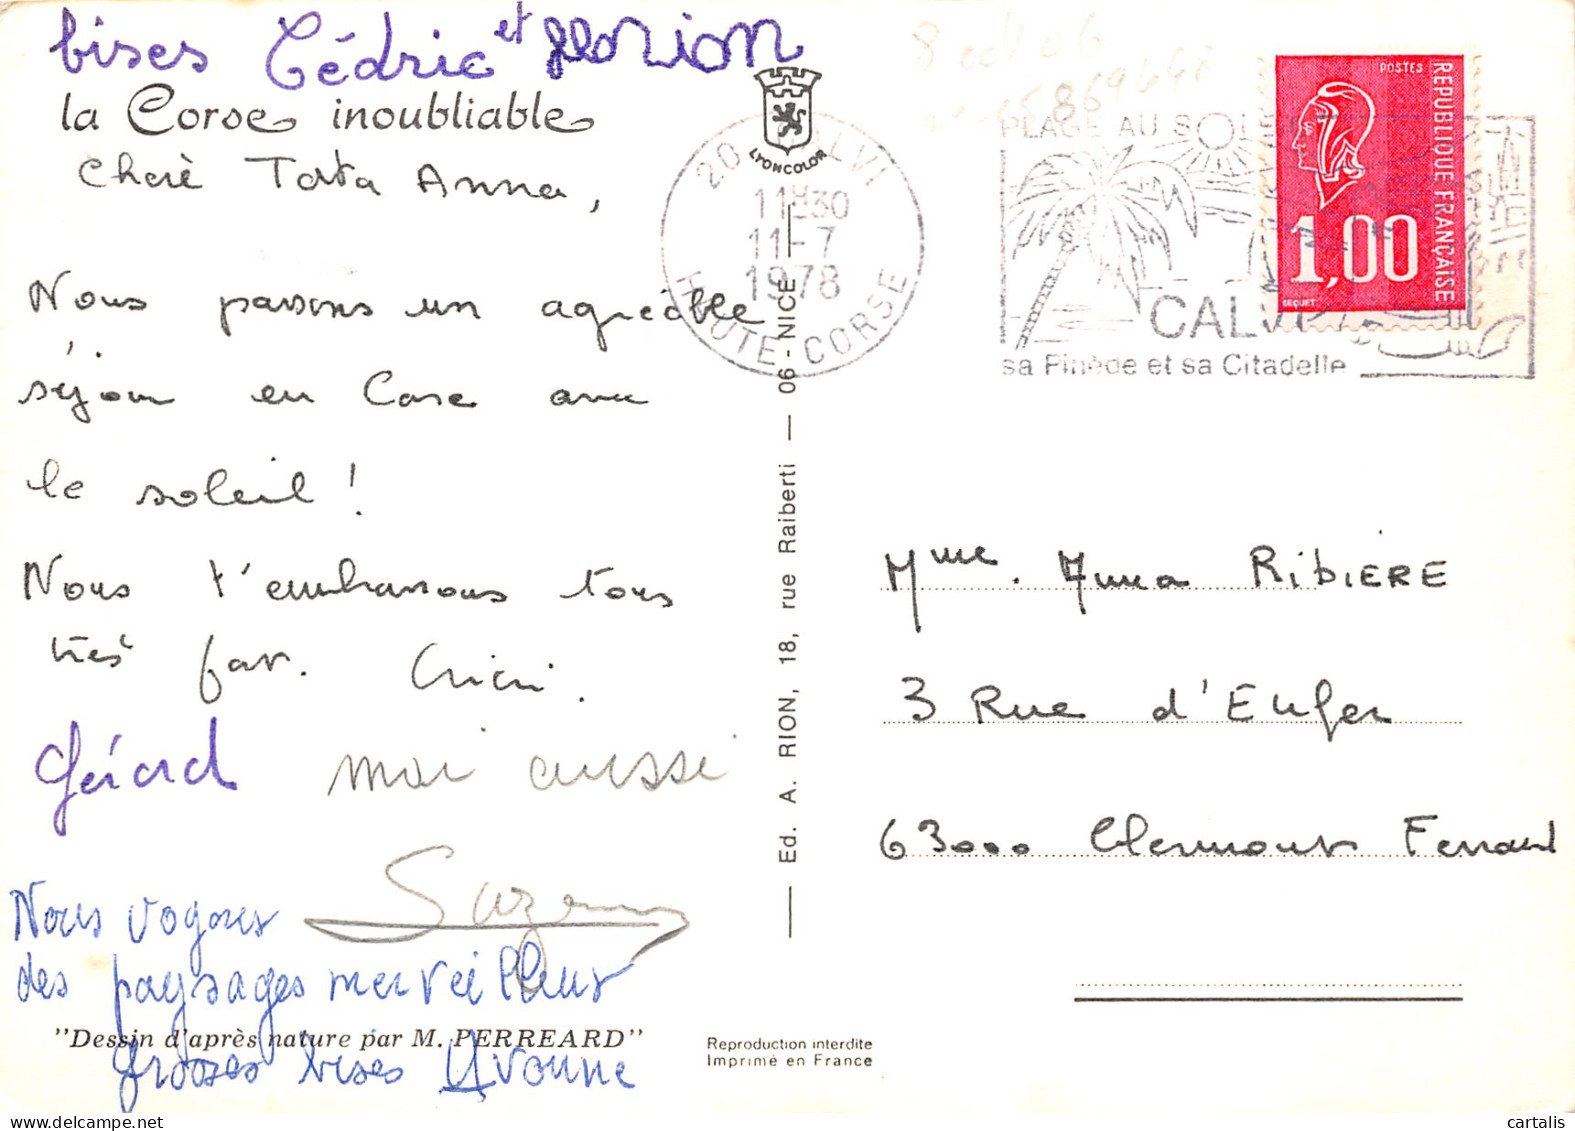 bises Cédric et florion
la Corse inoubliable
Cheré Tata Anna,
Nous passons un agréable
séjour en Corse avec
le soleil !
Nous t'embrassons tous
très fort. Cricri.
Gérard moi aussi
Suzanne
Nous voyons
des paysages merveilleux
"Dessin d'après nature par M. PERREARD"
grosses bises Yvonne
LYONCOLOR
Ed. A. RION, 18, rue Raiberti — 06 - NICE
Reproduction interdite
Imprimé en France
20 CALVI
11H30
11-7
1978
HAUTE-CORSE
PLAGE AU SOLEIL
CALVI
sa Pinède et sa Citadelle
POSTES
REPUBLIQUE FRANÇAISE
1,00
BEQUET
Mme. Anna RIBIERE
3 Rue d'Enfer
63000 Clermont Ferrand
cartalis